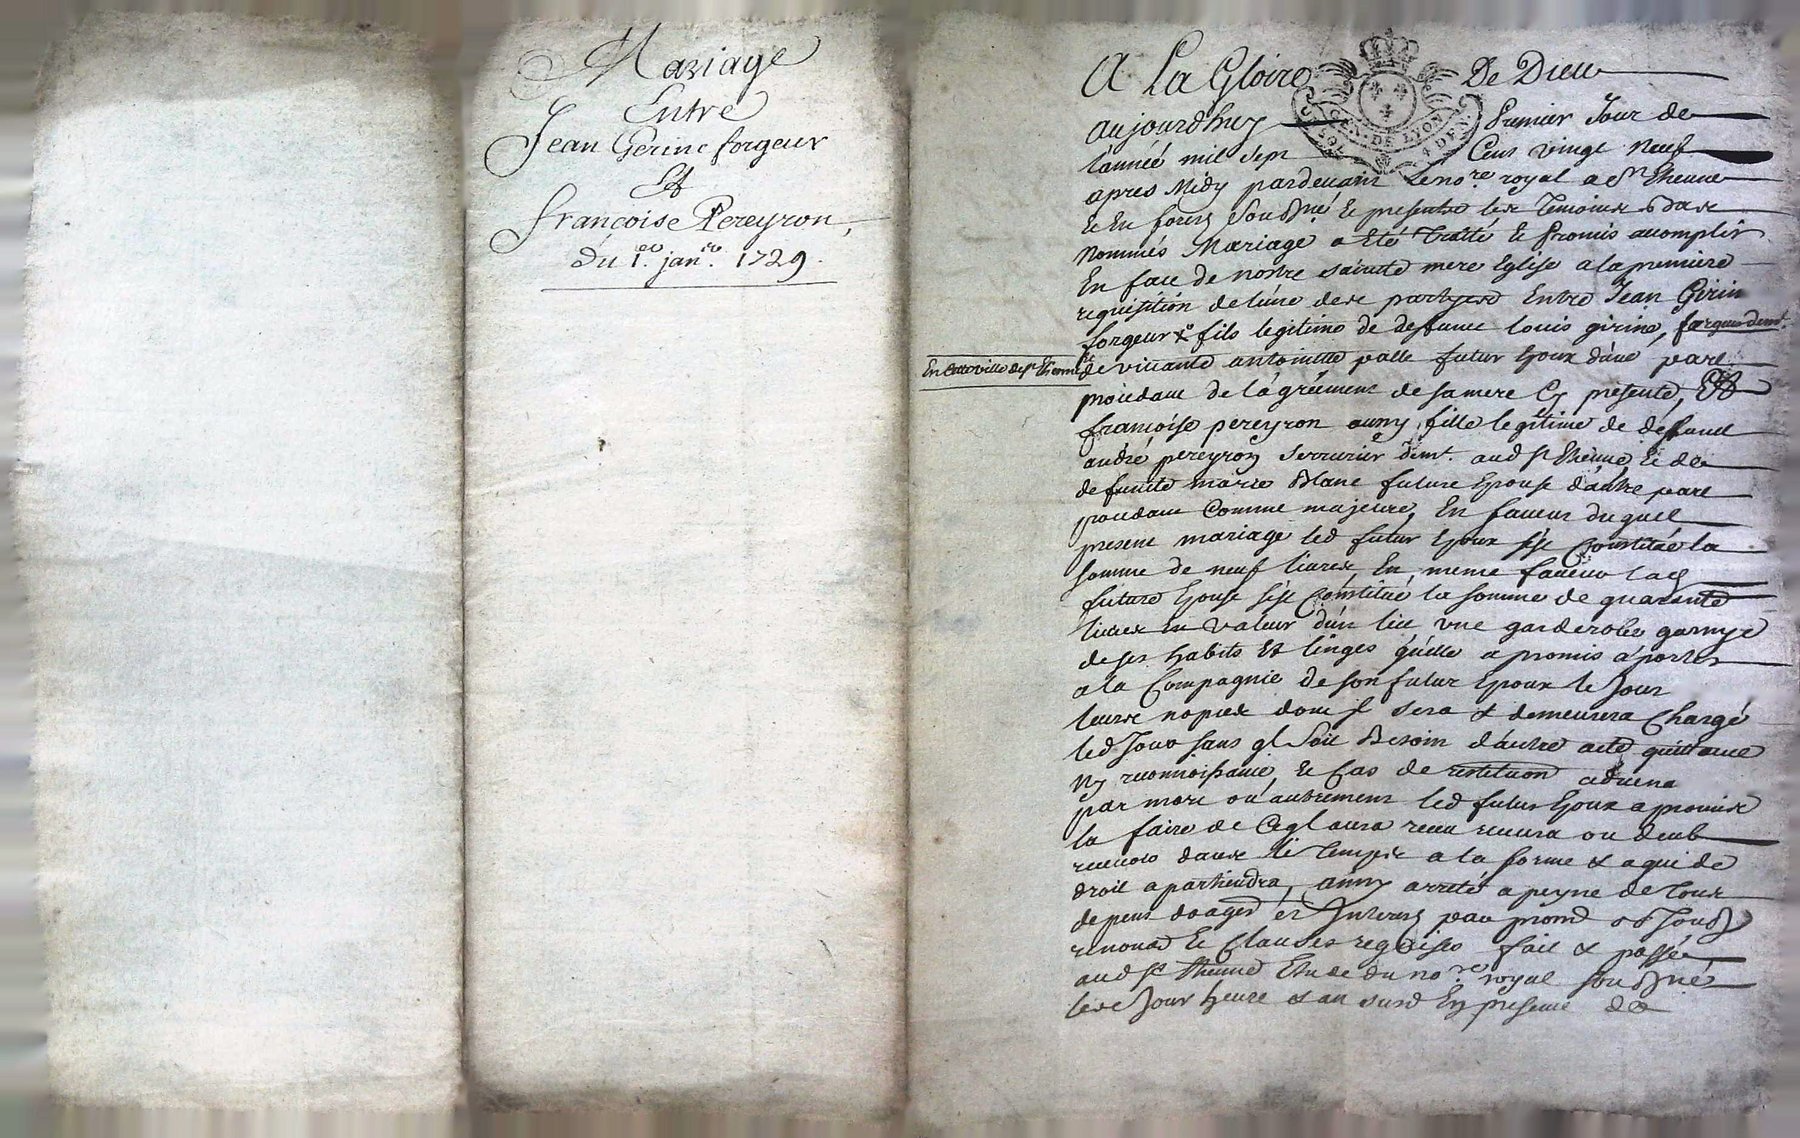 Mariage
Entre
Jean Gerine forgeur
Et
françoise Pereyron,
du 1.er jan.er 1729.
A La Gloire De Dieu
GEN. DE LYON
aujourdhuy Premier Jour de
l'année mil sept Cens vingt neuf
apres Midy pardevant Le no.re royal a St Etienne
En forest Sousigné & presents les Temoins
Nommés Mariage a Eté Traité & Promis accomplir
En face de nostre sainte mere Eglise a la premiere
requisition de l'une des partyes Entre Jean Girin
forgeur fils legitime de deffunt louis girine,
En Cette ville de St Etienne
de vivante antoinette palle futur Epoux d'une part
procedant de l'agréement de sa mere Cy presente, Et
françoise pereyron fille legitime de deffunt
andré pereyron Serrurier demt. aud St Etienne, & de
defunte marie Blanc future Epouse d'autre part
procedant Comme majeure, En faveur duquel
present mariage led futur Epoux s'est Constitué la
somme de neuf livres En meme faveur lad
future Epouse s'est Constitué la somme de quarante
livres En valeur d'un lit une garderobe garnye
de ses habits Et linges qu'elle a promis aporter
a la Compagnie de son futur Epoux le Jour
leurs nopces dont il sera & demeurera Chargé
led Jour sans ql soit Besoin d'autre acte quittance
Ny reconnoissance, & Cas de restituon advena
par mort ou autrement led futur Epoux a promis
la faire de Ceql aura receu
dans le temps a la forme & a qui de
droit apartiendra, arreté a peyne de tous
depens
renonce & Clauses requises fait & passé
aud St Etienne Etude du no.re royal sousigné
Jour heure & an susd En presence de